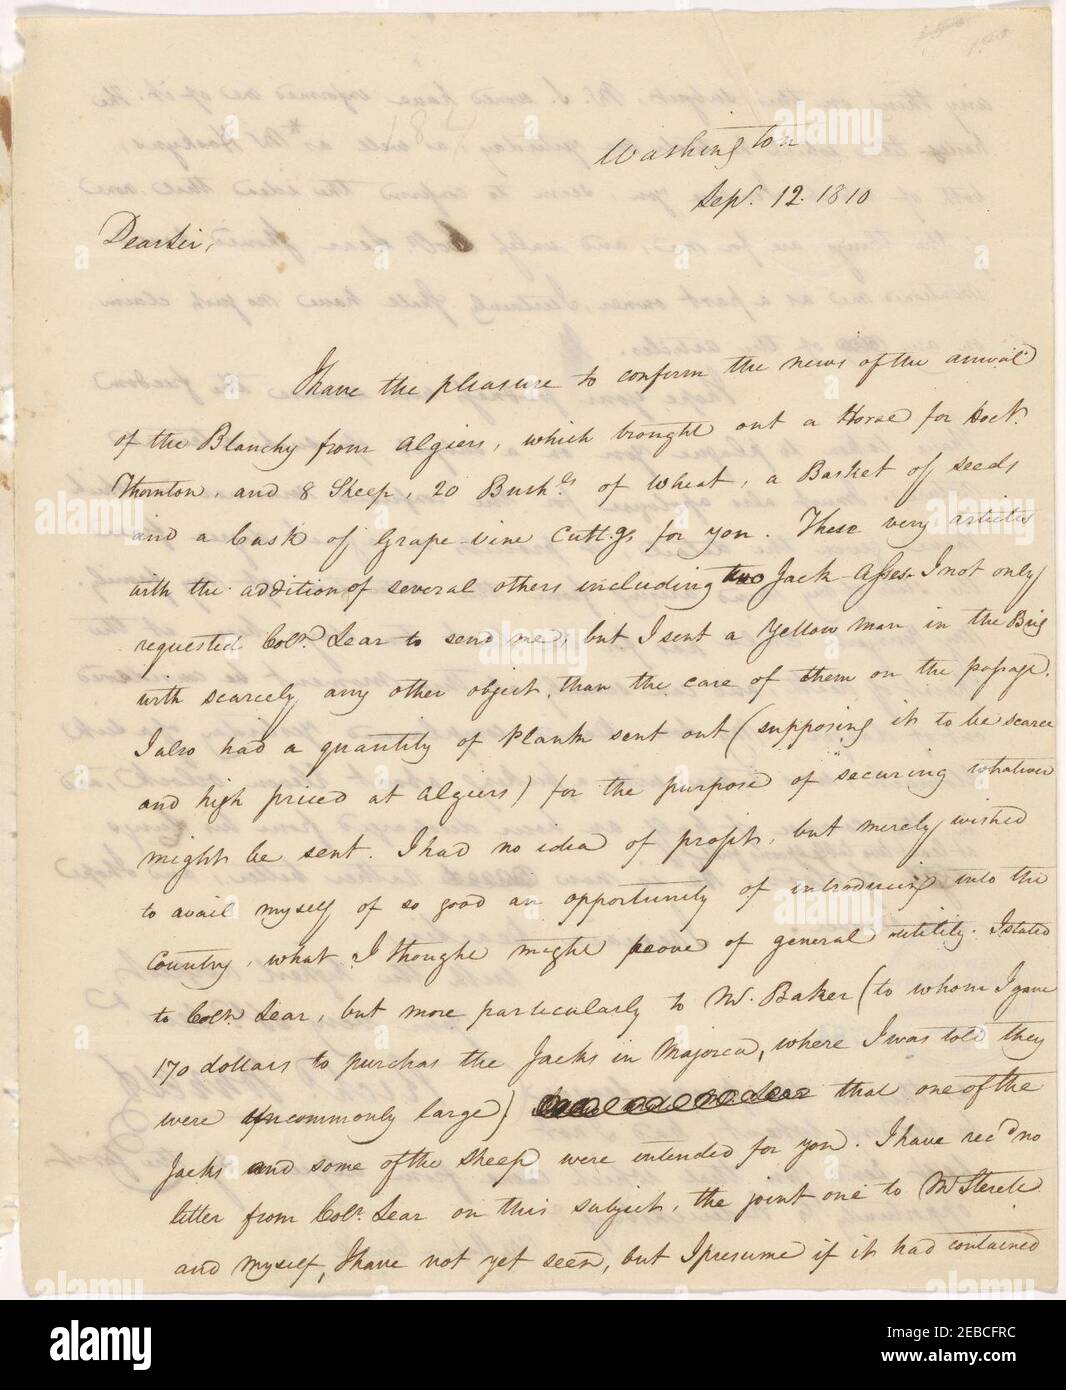 Washington
Sep.r 12. 1810
Dear Sir,
I have the pleasure to confirm the news of the arrival
of the Blanchy from Algiers, which brought out a Horse for Doct.r
Thornton, and 8 Sheep, 20 Bush.ls of Wheat, a Basket of seeds
and a Cask of Grape-vine Cutt.gs for you. These very articles
with the addition of several others including two Jack-Asses I not only
requested Col.o Lear to send me, but I sent a Yellow man in the Brig
with scarcely any other object, than the care of them on the passage.
I also had a quantity of Plank sent out (supposing it to be scarce
and high priced at Algiers) for the purpose of securing whatever
might be sent. I had no idea of profit, but merely wished
to avail myself of so good an opportunity of introducing into the
Country, what I thought might prove of general utility. I stated
to Col.o Lear, but more particularly to Mr. Baker (to whom I gave
170 dollars to purchas the Jacks in Majorca, where I was told they
were uncommonly large) that one of the
Jacks and some of the Sheep were intended for you. I have rec.d no
letter from Col.o Lear on this subject, the joint one to Mr Sterett
and myself, I have not yet seen, but I presume if it had contained
alamy
Image ID: 2EBCFRC
www.alamy.com